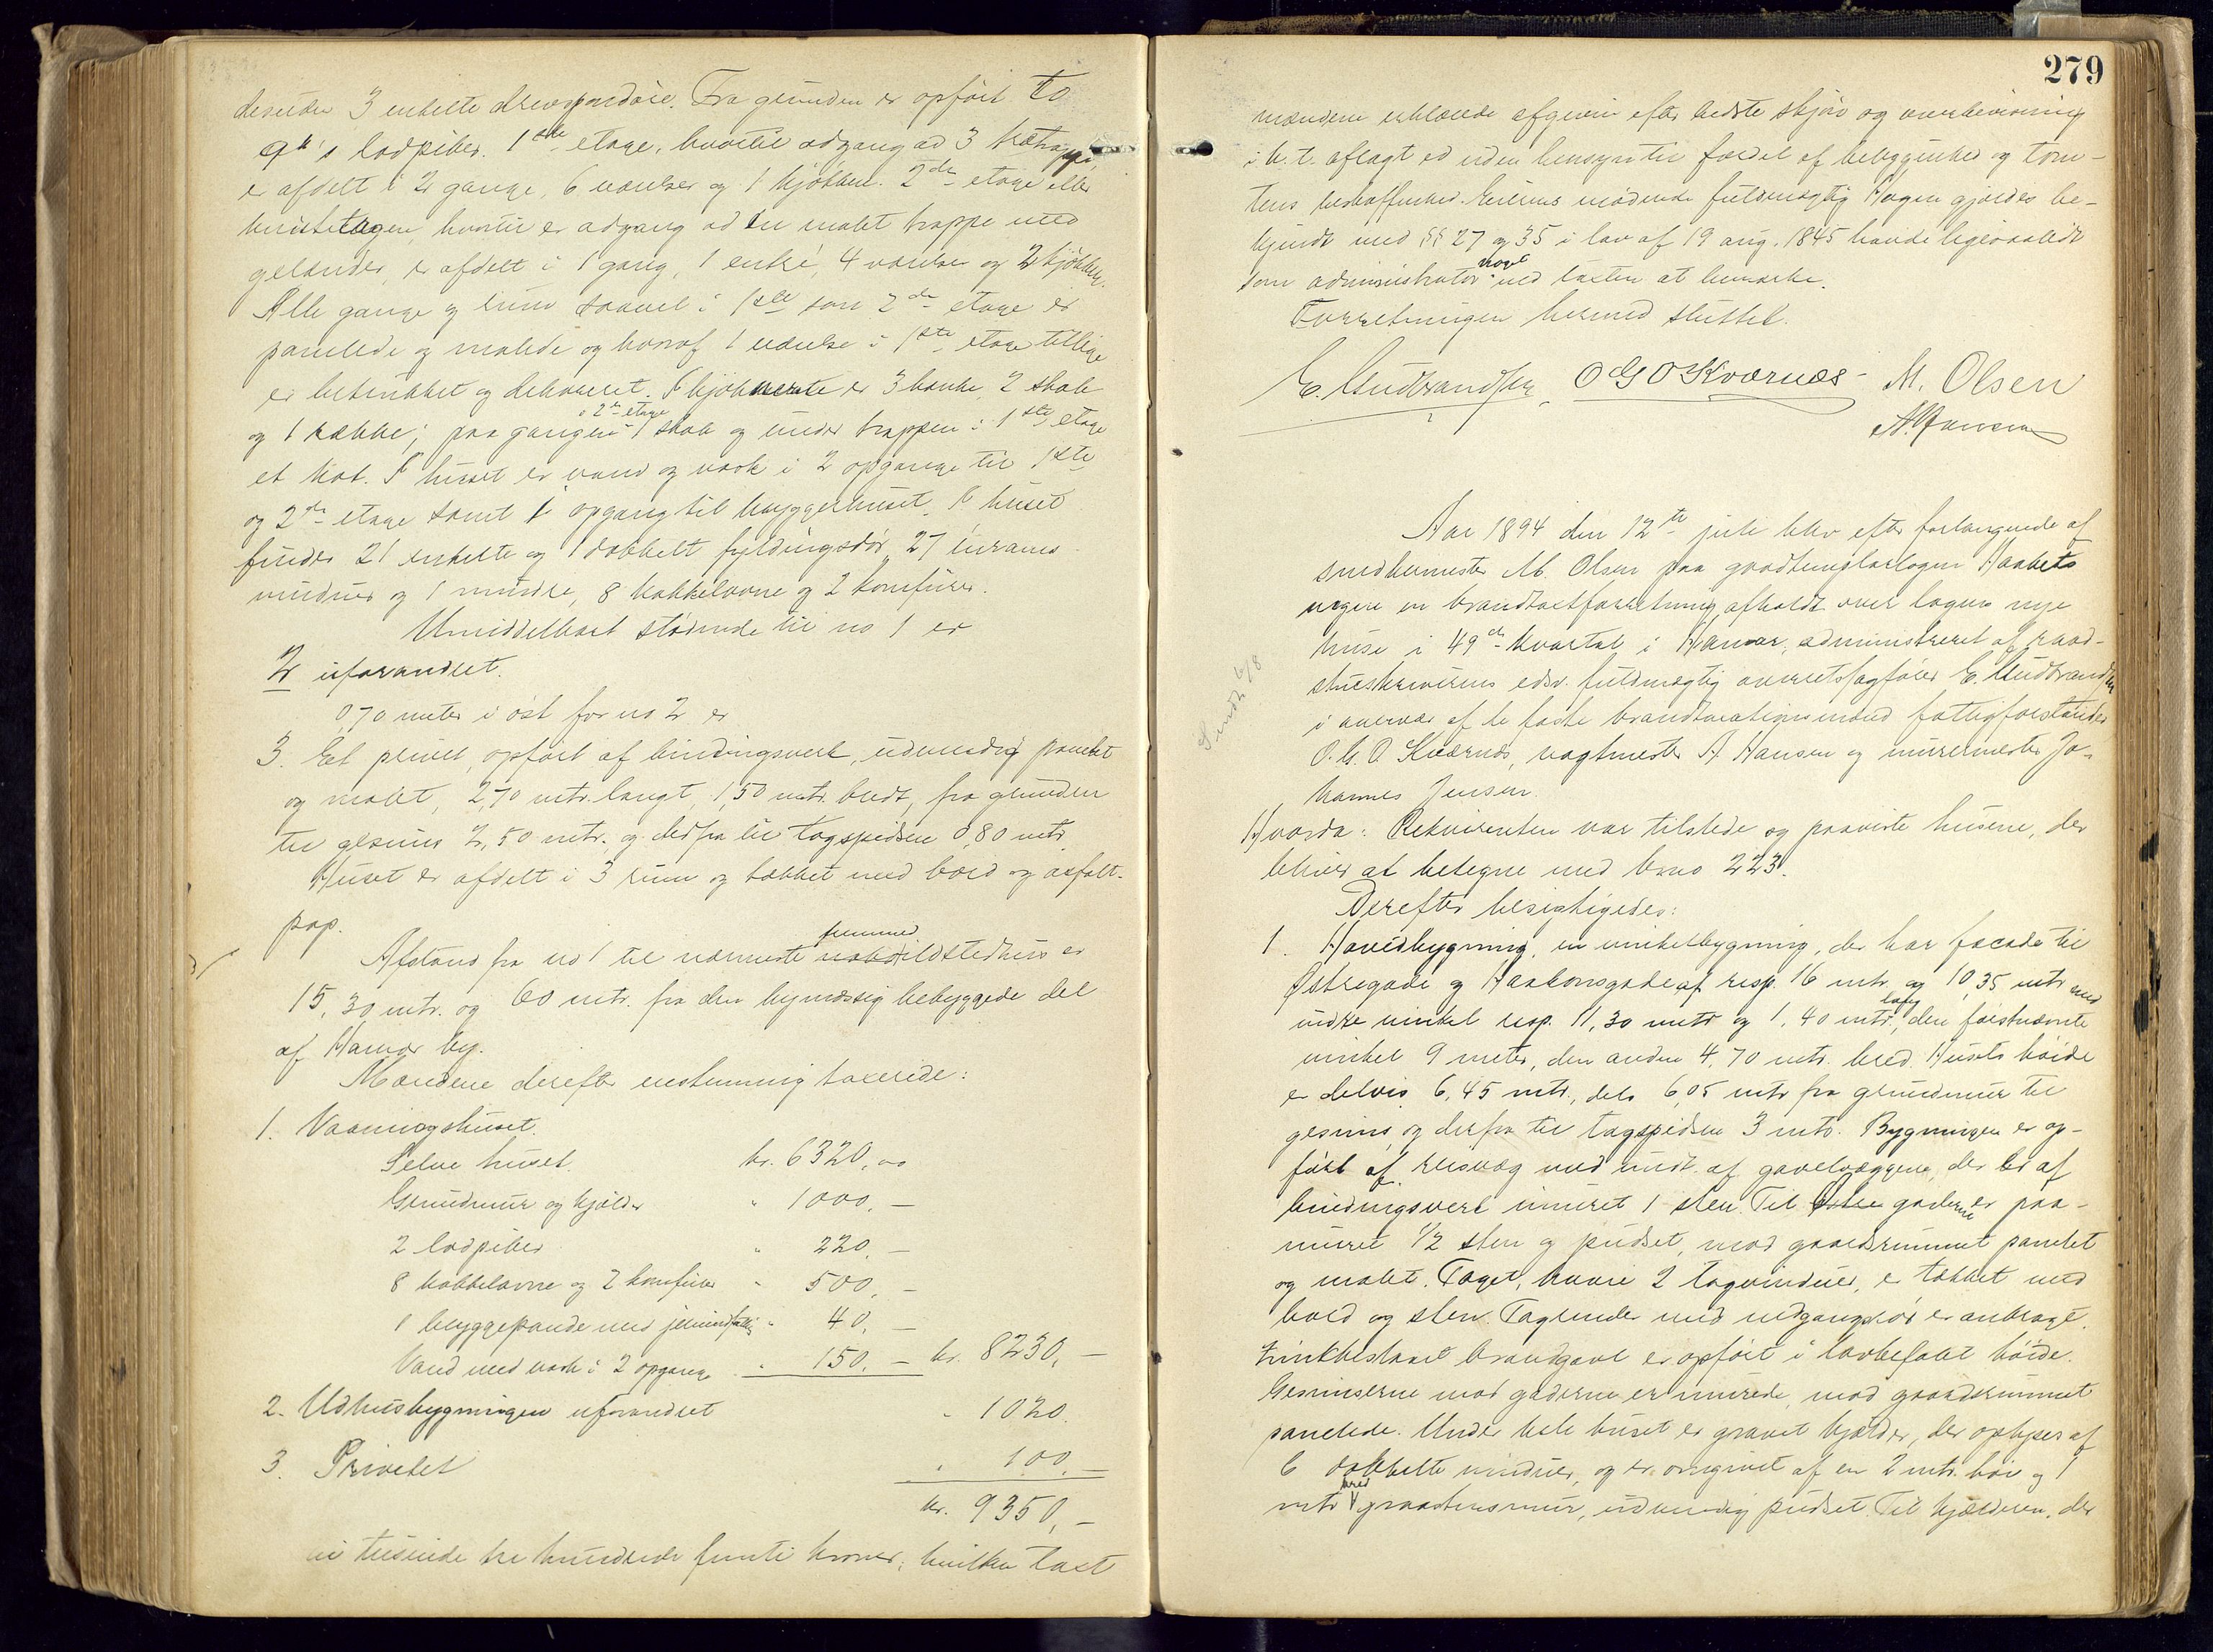 desuden 3 enkelte . Fra grunden er opført to
qk's lodpiber. 1ste etage, hvortil adgang ad 3 trætrapper
er afdelt i 2 gange, 6 værelser og 1 kjøkken. 2den etage eller
kvistetagen, hvortil er adgang ad en malet trappe med
gelænder, er afdelt i 1 gang, 1 entré, 4 værelser og 2 kjøkken.
Alle gange og rum saavel i 1ste som 2den etage er
panelede og malede og hvoraf 1 værelse i 1ste etage tillige
er betrukket og dekoreret. I kjøkkenerne er 3 bænke, 2 skab
og 1 række; paa gangen i 2den etage 1 skab og under trappen i 1ste etage
et kot. I huset er vand og vask i 2 opgange til 1ste
og 2den etage samt 1 opgang til bryggerhuset. I huset
findes 21 enkelte og 1 dobbelt fyldingsdør, 27 enrams
vinduer og 1 mindre, 8 kakkelovne og 2 komfurer.
Umiddelbart stødende til no 1 er
2 uforandret.
0,70 meter i øst for no 2 er
3. Et privet, opført af bindingsverk, udvendig panelet
og malet, 2,70 mtr. langt, 1,50 mtr. bredt, fra grunden
til gesims 2,50 mtr. og derfra til tagspidsen 0,80 mtr.
Huset er afdelt i 3 rum og tækket med bord og asfalt-
pap.
Afstand fra no 1 til nærmeste fremmed ildstedhus er
15,30 mtr. og 60 mtr. fra den bymæssig bebyggede del
af Hamar by.
Mændene derefter enstemmig taxerede:
1. Vaaningshuset.
Selve huset kr. 6320,00
Grundmur og kjelder " 1000,-
2 lodpiber " 220,-
8 kakkelovne og 2 komfurer " 500,-
1 bryggepande med jernindfattng " 40,-
Vand med vask i 2 opgange " 150,- kr. 8230,-
2. Udhusbygningen uforandret " 1020.
3. Privetet " 100,-
kr. 9350,-
ni tusinde tre hundrede femti kroner, hvilken taxt
279
mændene erklærede afgiven efter bedste skjøn og overbevisning
i h. t. aflagt ed uden hensyn til fordel af beliggenhed og tom-
tens beskaffenhed. Eierens mødende fuldmægtig Hagen gjordes be-
kjendt med §§ 27 og 35 i lov af 19 aug. 1845 havde ligesaalidt
som administrator noget ved taxten at bemærke.
Forretningen hermed sluttet.
E. Gudbrandsen O G O Kværnæs M. Olsen
A. Hansen
Aar 1894 den 12te juli blev efter forlangende af
snedkermester M. Olsen paa goodtemplarlogen Haabets
vegne en brandtaxtforretning afholdt over logens nye
huse i 49de kvartal i Hamar, administreret af raad-
stueskriverens edsv. fuldmægtig overretssagfører E. Gudbrandsen
i overvær af de faste brandtaxationsmænd fattigforstander
O. G. O Kværnæs, vagtmester A Hansen og murermester Jo-
hannes Jensen.
Sendt 4/8
Hvorda: Rekvirenten var tilstede og paaviste husene, der
bliver at betegne med br.no 223.
Derefter besigtigedes:
1. Hovedbygning, en vinkelbygning, der har facade til
Østregade og Haakonsgade af resp. 16 mtr. og 10,35 mtr med
indre vinkel resp. 11,30 mtr og 1,40 mtr. lang, den førstnævnte
vinkel 9 meter, den anden 4,70 mtr. bred. Husets høide
er delvis 6,45 mtr., dels 6,05 mtr fra grundmur til
gesims og derfra til tagspidsen 3 mtr. Bygningen er op-
ført af reisværk med undt. af gavelvæggene, der er af
bindingsverk imuret 1 sten. Til gaderne er paa-
muret 1/2 sten og pudset, mod gaardsrummet panelet
og malet. Taget, hvori 2 tagvinduer, er tækket med
bord og sten. Tagrender med nedgangsrør er anbragt.
Zinkbeslaaet brandgavl er opført i lovbefalet høide.
Gesimserne mod gaderne er murede, mod gaardsrummet
panelede. Under hele huset er gravet kjælder, der oplyses af
6 dobbelte vinduer, og er omgivet af en 2 mtr. høi og 1
mtr bred graastensmur, udvendig pudset. Til kjælderen, der